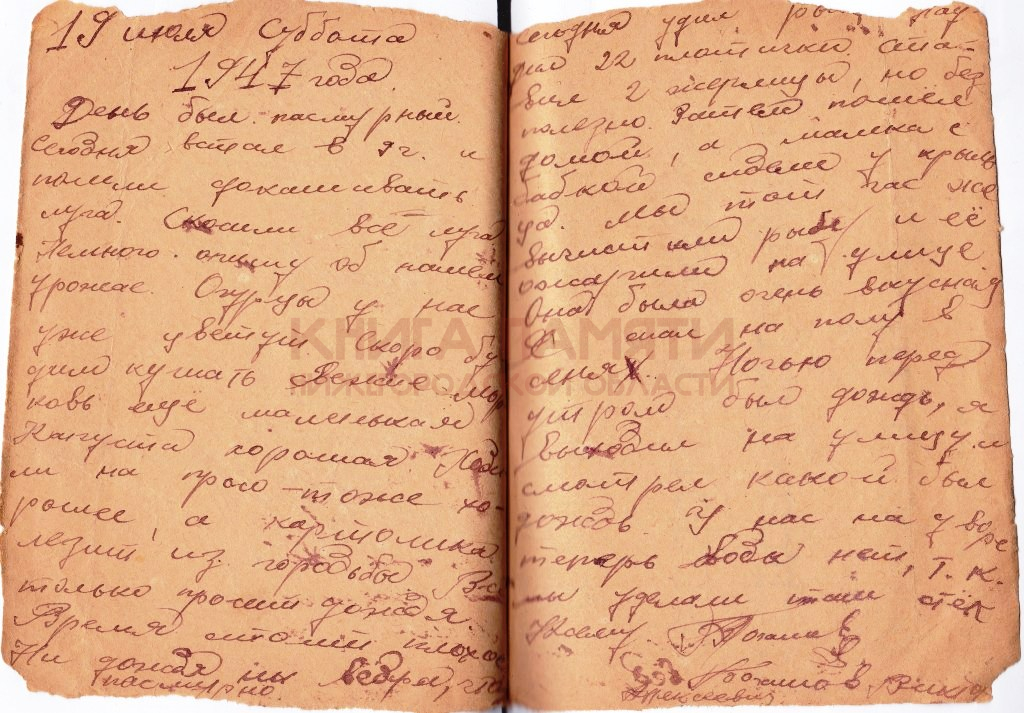 19 июля Суббота
1947 года.
День был пасмурный.
Сегодня встал в 9 г. и
пошли докашивать
луга. Скосили всё луга
Немного опишу об нашем
урожае. Огурцы у нас
уже цветут. Скоро бу
дим кушать свежие Мор
ковь ещё маленькая
Капуста хорошая. Ходи
ли на просо тоже хо-
рошее, а картошка
лезит из городьбы Всё
только просит дождя.
Время стоит плохое
Ни дождя ни вёдра, что
пасмурно.
Сегодня удил рыбу пой
мал 22 плотички. Ста-
вил 2 жерлицы, но без
полезно. Затем пошёл
домой, а мамка с
бабкой сидели у крыль
ца. Мы тот час же
вычистили рыбу и её
пожарили на улице
Она была очень вкусная
Я спал на полу в
сенях. Ночью перед
утром был дождь, я
выходил на улицу и
смотрел какой был
дождь У нас на дворе
теперь воды нет, т.к.
мы уделали там сток
Алексеевич
КНИГА ПАМЯТИ
НИЖЕГОРОДСКОЙ ОБЛАСТИ